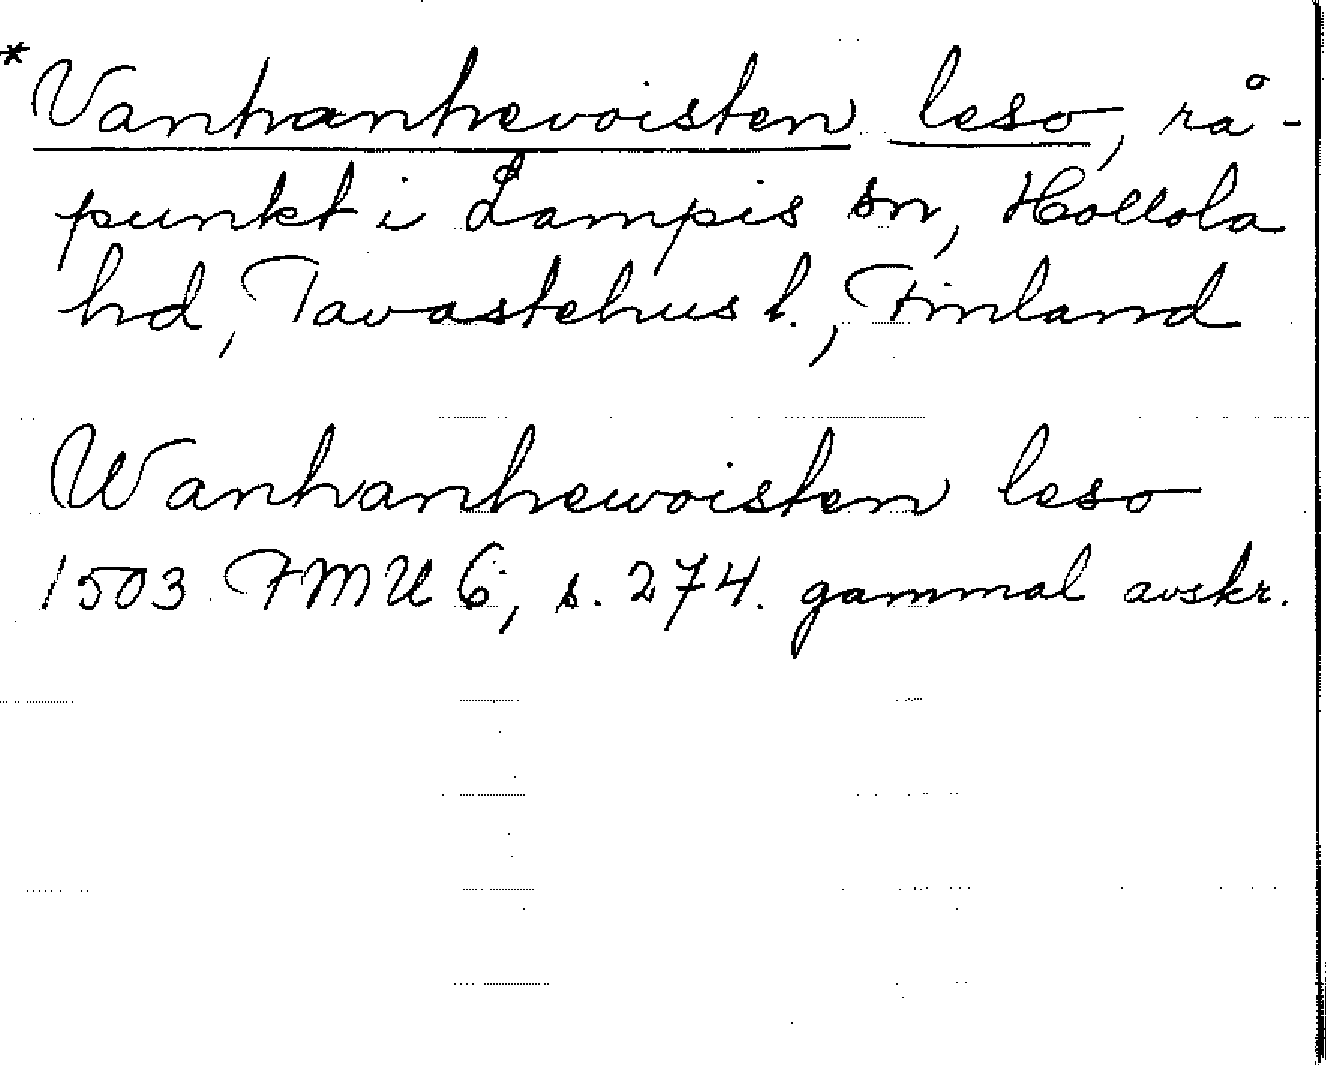 *Vanhanhevoisten leso, rå-
punkt i Lampis sn, Hollola
hd, Tavastehus l., Finland
Wanhanhewoisten leso
1503 FMU 6, s. 274. gammal avskr.